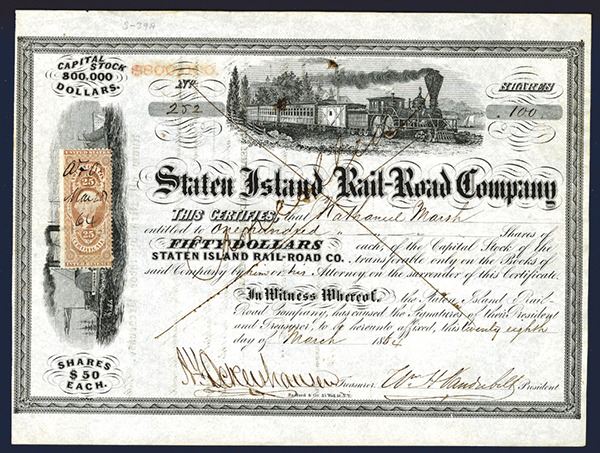 S-39A
CAPITAL STOCK
800,000
DOLLARS.
$800,000.
No.
252
SHARES
100
25
25
A.F.O.
Mar 28
64
Staten Island Rail-Road Company
THIS CERTIFIES, that Nathaniel Marsh
entitled to One hundred Shares of
FIFTY DOLLARS each, of the Capital Stock of the
STATEN ISLAND RAIL-ROAD CO. transferable only on the Books of
said Company by him or his Attorney on the surrender of this Certificate.
In Witness Whereof, the Staten Island Rail-
Road Company, has caused the Signatures of their President
and Treasurer, to be hereunto affixed, this twenty eighth
day of March 1864
SHARES
$50
EACH.
Treasurer.
Wm H Vanderbilt President